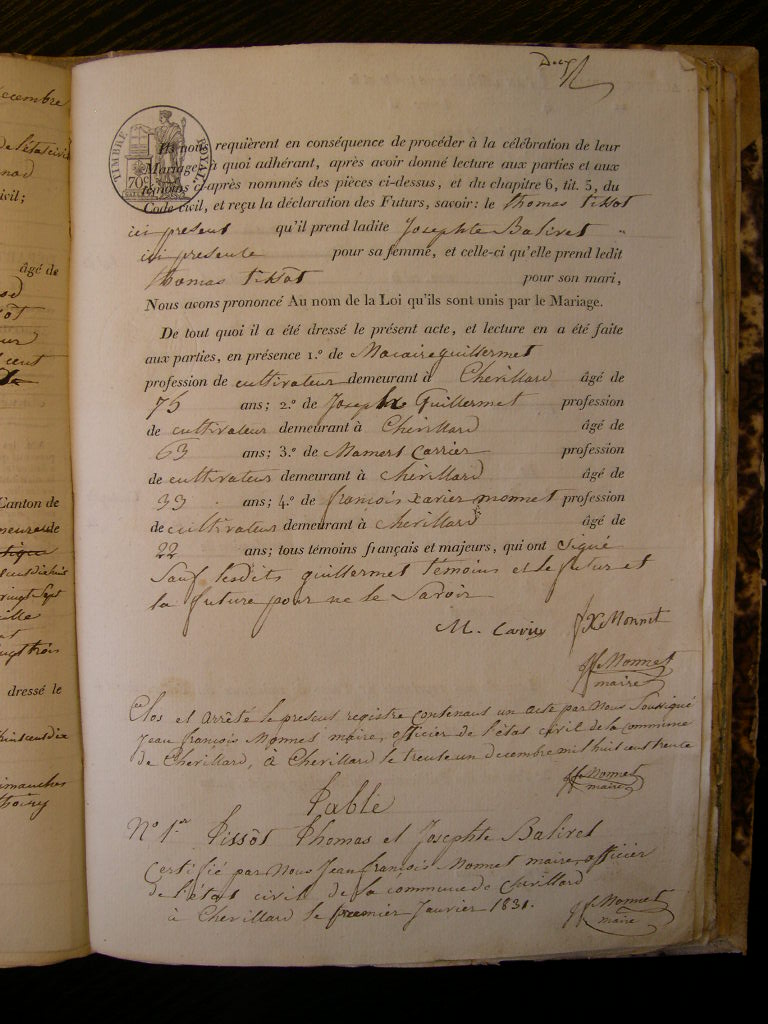 ecembre
de l'état civil
ivil;
âgé de
Canton de
dressé le
Deux
TIMBRE ROYAL
70c
Ils nous requièrent en conséquence de procéder à la célébration de leur
Mariage, à quoi adhérant, après avoir donné lecture aux parties et aux
témoins ci-après nommés des pièces ci-dessus, et du chapitre 6, tit. 5, du
Code civil, et reçu la déclaration des Futurs, savoir: le Thomas tissot
ici present qu'il prend ladite Josephte Balivet "
ici presente pour sa femme, et celle-ci qu'elle prend ledit
Thomas tissot pour son mari,
Nous avons prononcé Au nom de la Loi qu'ils sont unis par le Mariage.
De tout quoi il a été dressé le présent acte, et lecture en a été faite
aux parties, en présence 1.º de Macaire guillermet
profession de cultivateur demeurant à Chevillard âgé de
75 ans; 2.º de Joseph Guillermet profession
de cultivateur demeurant à Chevillard âgé de
63 ans; 3.º de Mamert Carrier profession
de cultivateur demeurant à chevillard âgé de
33 ans; 4.º de françois xavier monnet profession
de cultivateur demeurant à chevillard âgé de
22 ans; tous témoins français et majeurs, qui ont signé
Sauf lesdits guillermet témoins et le futur et
la future pour ne le Savoir
M. Carrier fXe Monnet
jfs Monnet
maire
Clos et arrêté le present registre contenant un acte par Nous Soussigné
Jean françois Monnet maire, officier de l'état civil de la commune
de Chevillard, à Chevillard le trente un decembre mil huit cent trente
jfs Monnet
maire
Table
Nº 1er Tissôt Thomas et Josephte Balivet
Certifié par Nous Jean françois Monnet maire, officier
de l'état civil de la commune de chevillard
à Chevillard le premier Janvier 1831.
jfs Monnet
maire